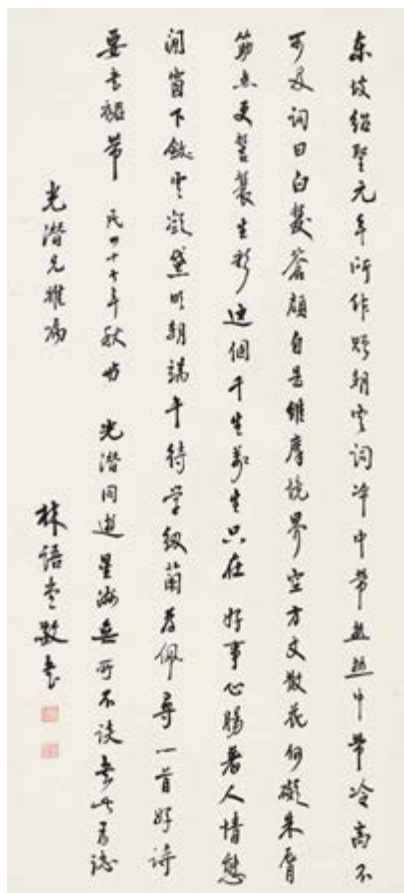 东坡紹聖元年所作贈朝雲詞冷中帶熱熱中帶冷高不
可及詞曰白髮蒼顏自是維摩境界空方丈散花何礙朱唇
筋点更髻鬟生彩這個千生萬生只在好事心腸着人情態
閒窗下斂雲凝黛明朝端午待学紉蘭為佩尋一首好詩
要書裙帶 民四十七年秋与光潛同遊星洲無所不談書此為誌
光潛兄雅屬 林語堂敬書